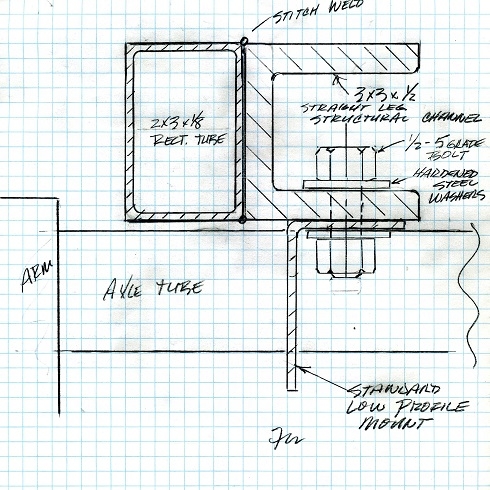 STITCH WELD
3x3x1/2
STRAIGHT LEG
STRUCTURAL CHANNEL
2x3x1/8
RECT. TUBE
1/2-5 GRADE
BOLT
HARDENED
STEEL
WASHERS
ARM
AXLE TUBE
STANDARD
LOW PROFILE
MOUNT